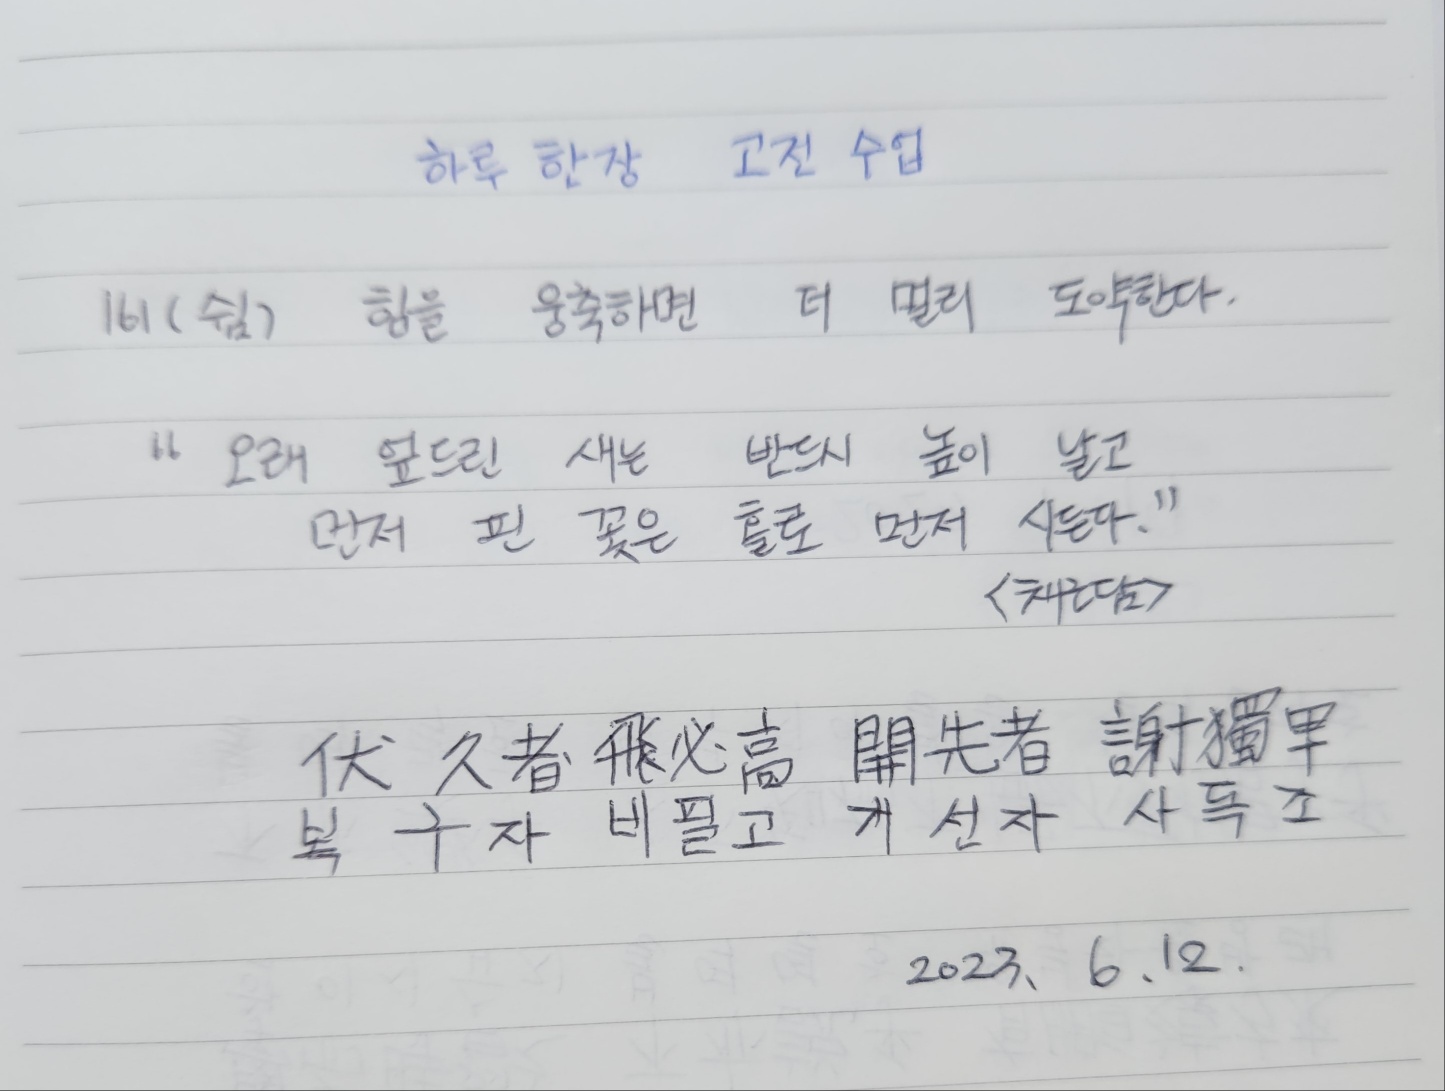 하루 한장 고전 수업
161(쉼) 힘을 웅축하면 더 멀리 도약한다.
“ 오래 엎드린 새는 반드시 높이 날고
먼저 핀 꽃은 홀로 먼저 시든다.”
<채근담>
伏 久者 飛必高 開先者 謝獨早
복 구자 비필고 개선자 사득조
2023. 6.12.